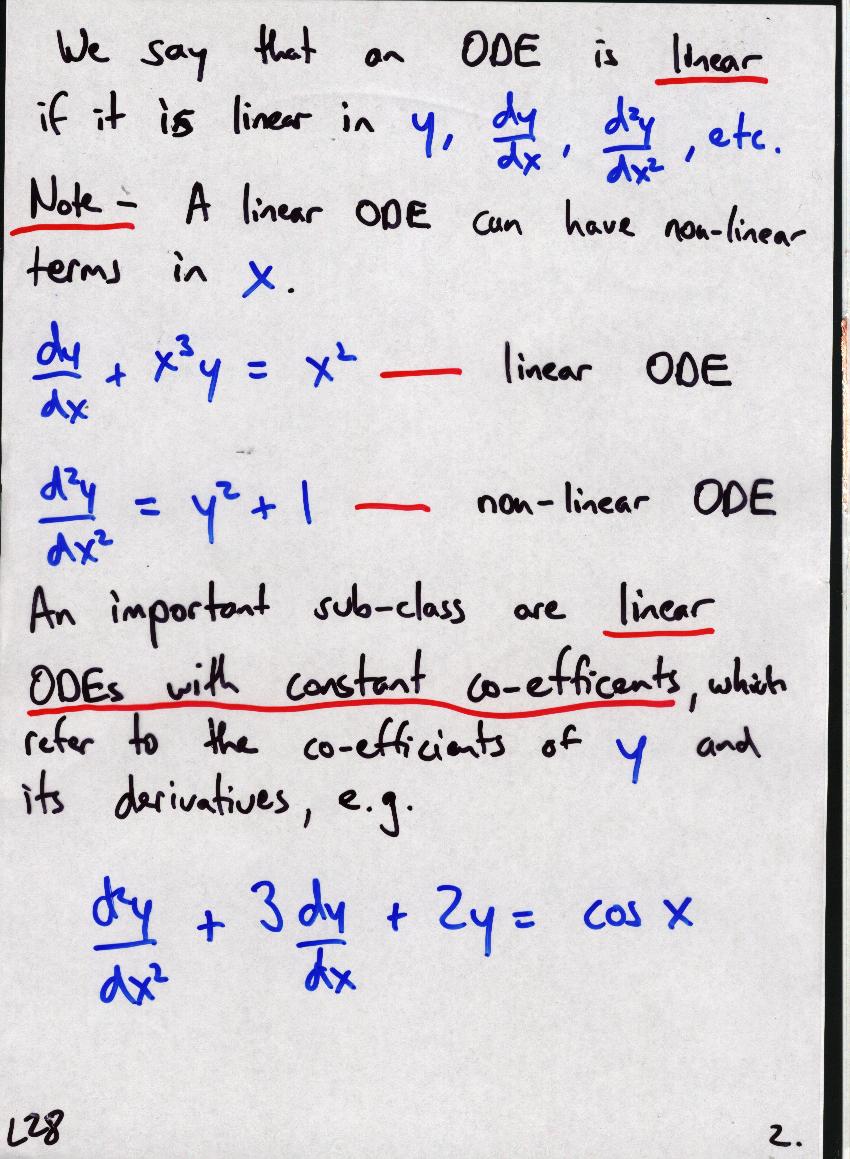 We say that an ODE is linear
if it is linear in y, dy/dx, d²y/dx², etc.
Note - A linear ODE can have non-linear
terms in x.
dy/dx + x³y = x² — linear ODE
d²y/dx² = y² + 1 — non-linear ODE
An important sub-class are linear
ODEs with constant co-efficents, which
refer to the co-efficients of y and
its derivatives, e.g.
d²y/dx² + 3 dy/dx + 2y = cos x
L28 2.